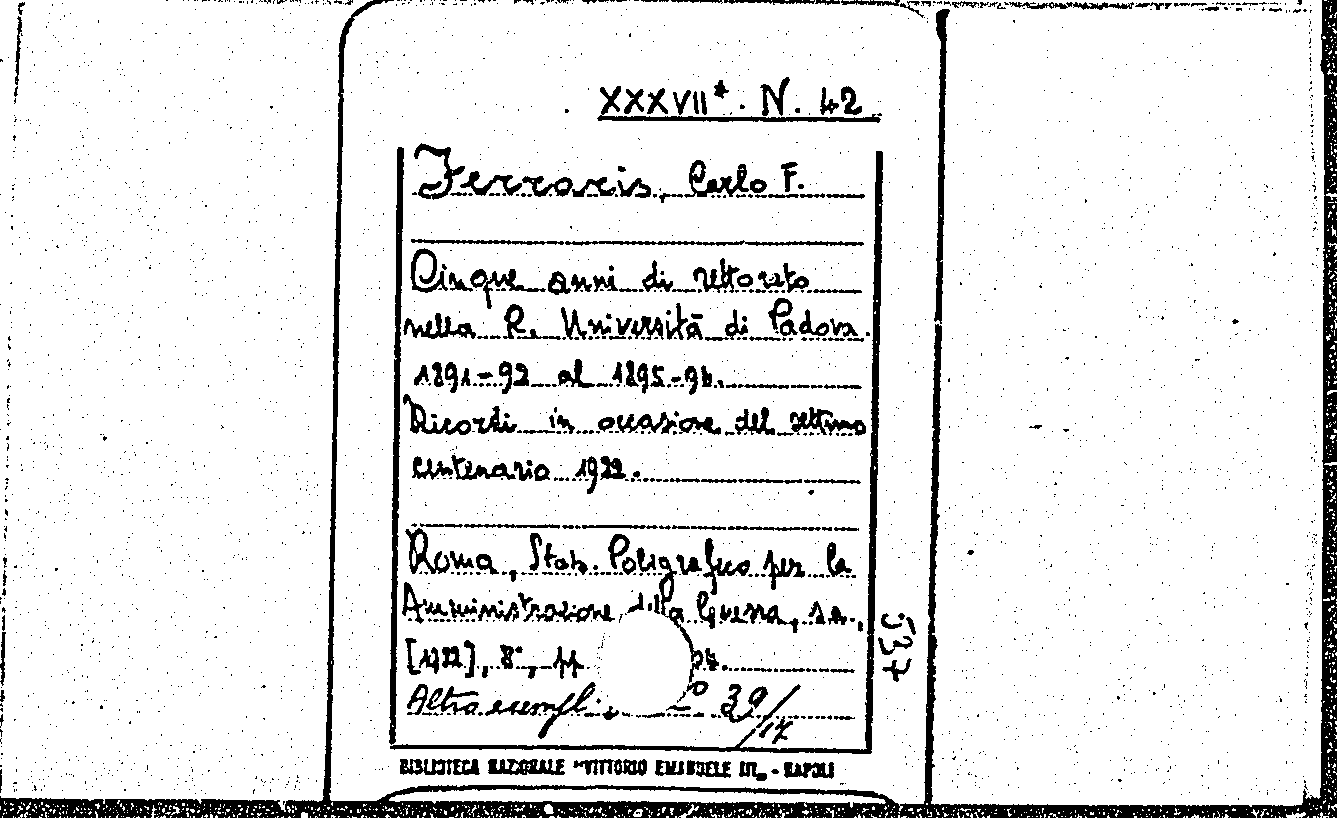 XXXVII* . N. 42
Ferraris, Carlo F.
Cinque anni di rettorato
nella R. Università di Padova.
1891-92 al 1895-96.
Ricordi in occasione del settimo
centenario 1922.
Roma, Stab. Poligrafico per la
Amministrazione della Guerra, s.a.,
[1922], 8°, pp
Altro esempl. 39/17
537
BIBLIOTECA NAZIONALE "VITTORIO EMANUELE III" - NAPOLI